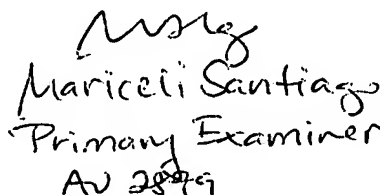 Mariceli Santiago
Primary Examiner
AU 2879